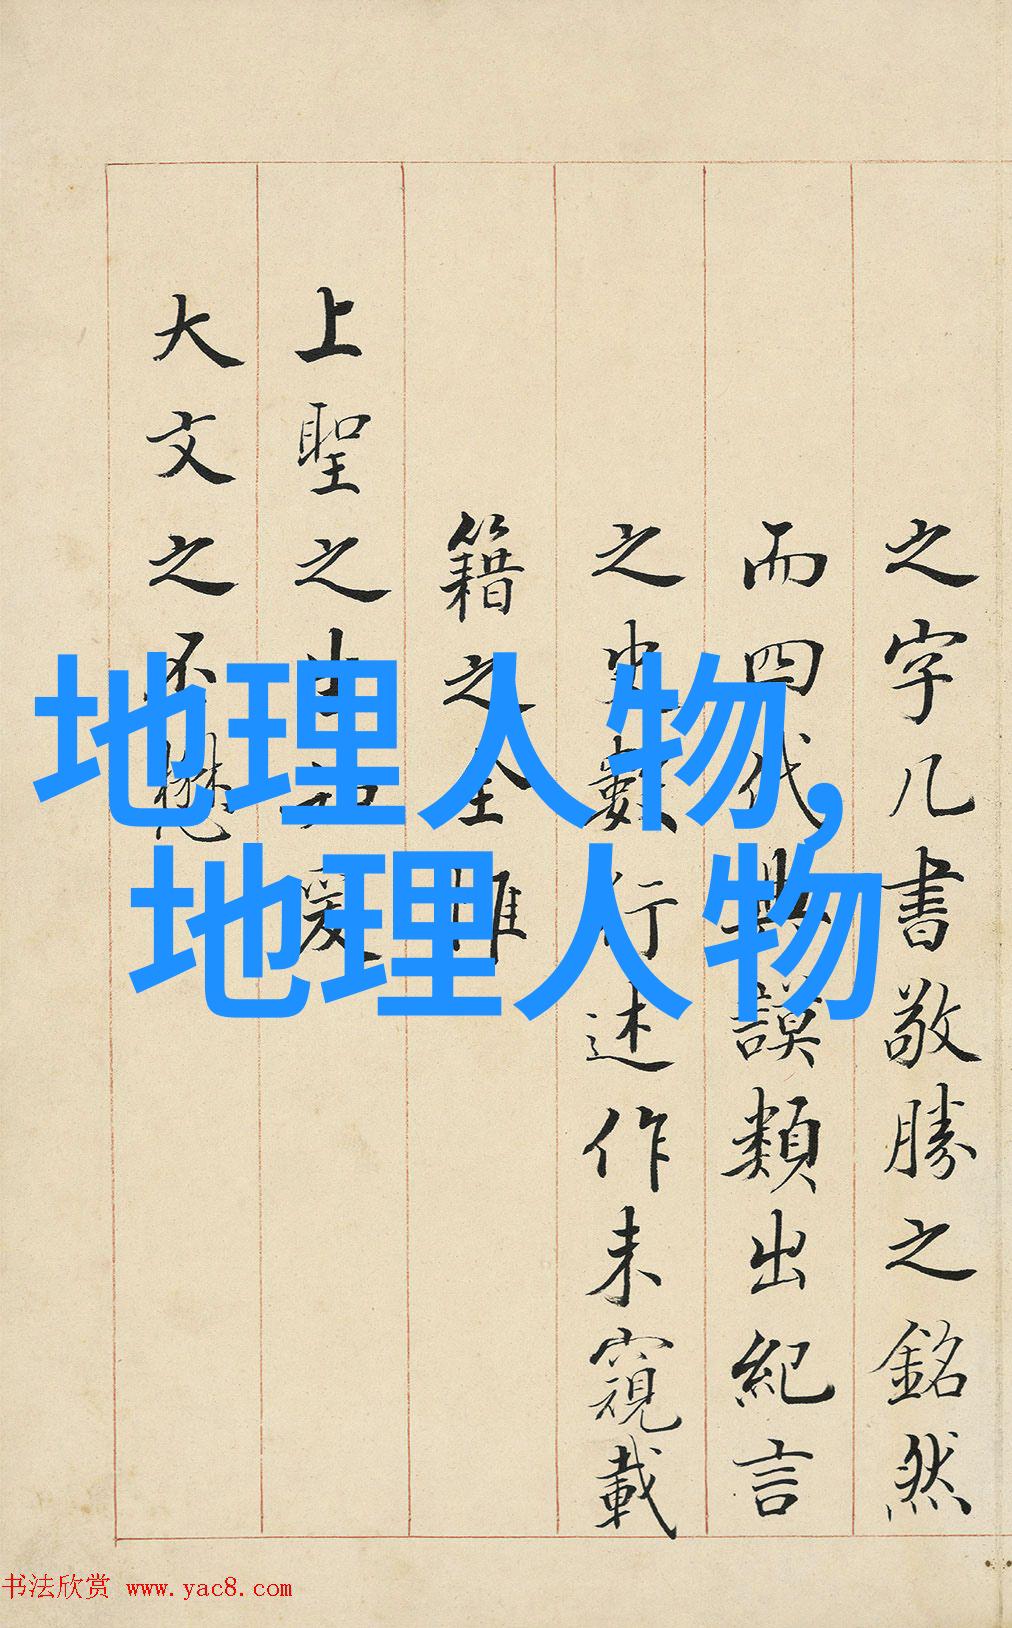 之字几書敬勝之銘然
而四代典謨類出紀言
之史數行述作未窺載
籍之全惟
上聖之爰
大文之丕懋
地理人物,
地理人物
书法欣赏 www.yac8.com